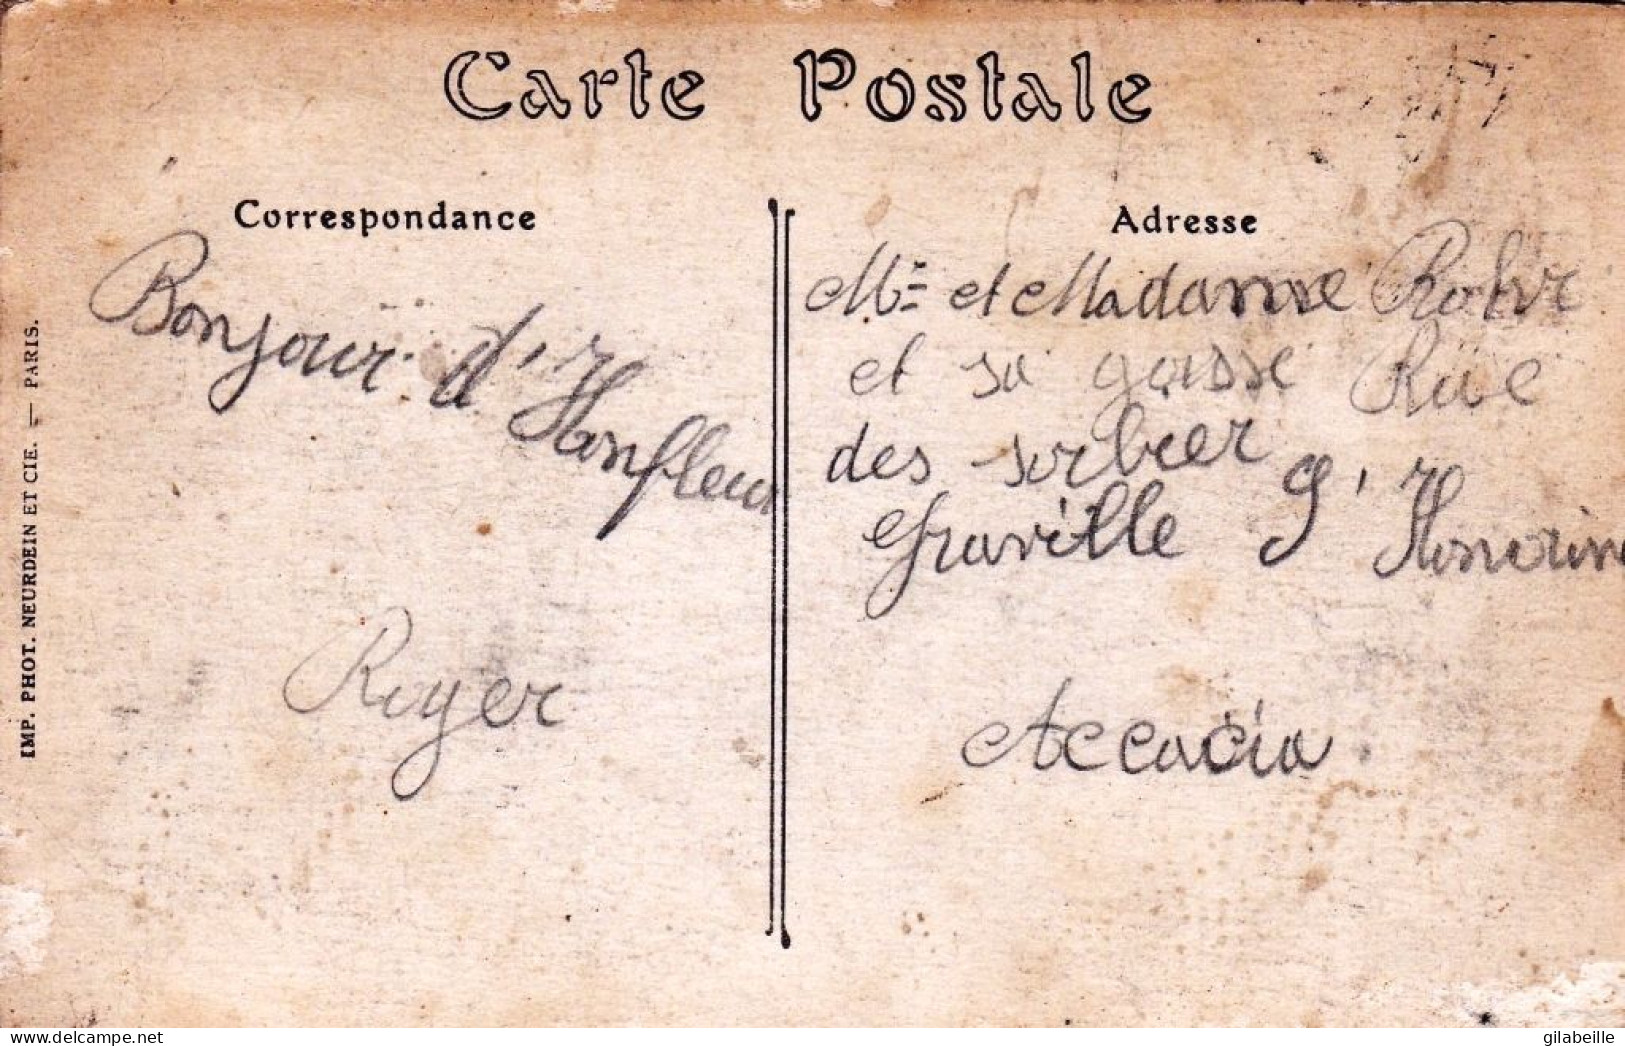 Carte Postale
Correspondance
Bonjour d'Honfleur
Roger
Adresse
Mr et Madame Rohr
et sa gosse Rue
des sorbier
Graville S' Honorine
Accacia
IMP. PHOT. NEURDEIN ET CIE. — PARIS.
delcampe.net
gilabeille